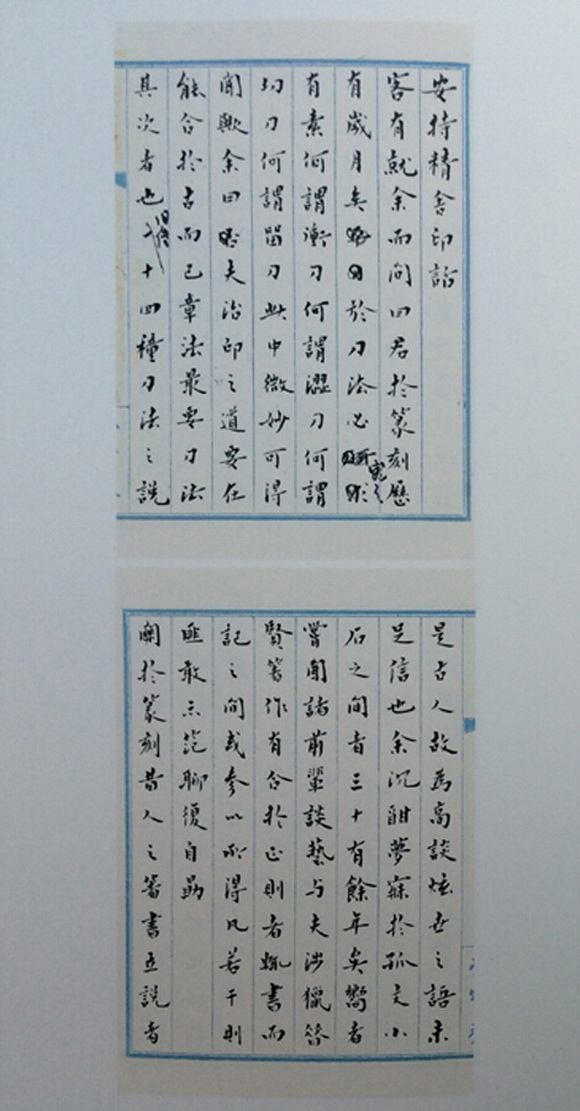 安持精舍印話
客有就余而問曰君於篆刻歷
有歲月矣於刀法必
有素何謂衝刀何謂澀刀何謂
切刀何謂留刀此中微妙可得
聞歟余曰夫治印之道要在
能合於古而已章法最要刀法
其次者也十四種刀法之說
是古人故為高談炫世之語未
足信也余沉酣夢寐於孤文小
石之間者三十有餘年矣嚮者
嘗聞諸前輩談藝与夫涉獵昔
賢箸作有合於正則者輒書而
記之間或參以所得凡若干則
匪敢示範聊復自勗
關於篆刻昔人之箸書立說者